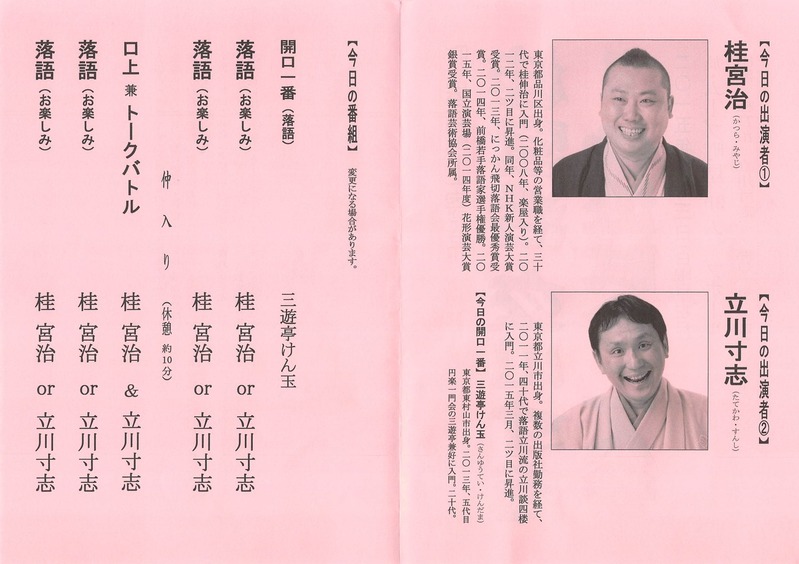 【今日の出演者①】
桂宮治（かつら・みやじ）
東京都品川区出身。化粧品等の営業職を経て、三十
代で桂伸治に入門（二〇〇八年、楽屋入り）。二〇
一二年、二ツ目に昇進。同年、NHK新人演芸大賞
受賞。二〇一三年、にっかん飛切落語会最優秀賞受
賞。二〇一四年、前橋若手落語家選手権優勝。二〇
一五年、国立演芸場（二〇一四年度）花形演芸大賞
銀賞受賞。落語芸術協会所属。
【今日の出演者②】
立川寸志（たてかわ・すんし）
東京都立川市出身。複数の出版社勤務を経て、
二〇一一年、四十代で落語立川流の立川談四楼
に入門。二〇一五年三月、二ツ目に昇進。
【今日の開口一番】三遊亭けん玉（さんゆうてい・けんだま）
東京都東村山市出身。二〇一三年、五代目
円楽一門会の三遊亭兼好に入門。二十代。
【今日の番組】変更になる場合があります。
開口一番（落語） 三遊亭けん玉
落語（お楽しみ） 桂 宮治 or 立川寸志
落語（お楽しみ） 桂 宮治 or 立川寸志
仲入り（休憩 約10分）
口上 兼 トークバトル 桂 宮治 & 立川寸志
落語（お楽しみ） 桂 宮治 or 立川寸志
落語（お楽しみ） 桂 宮治 or 立川寸志